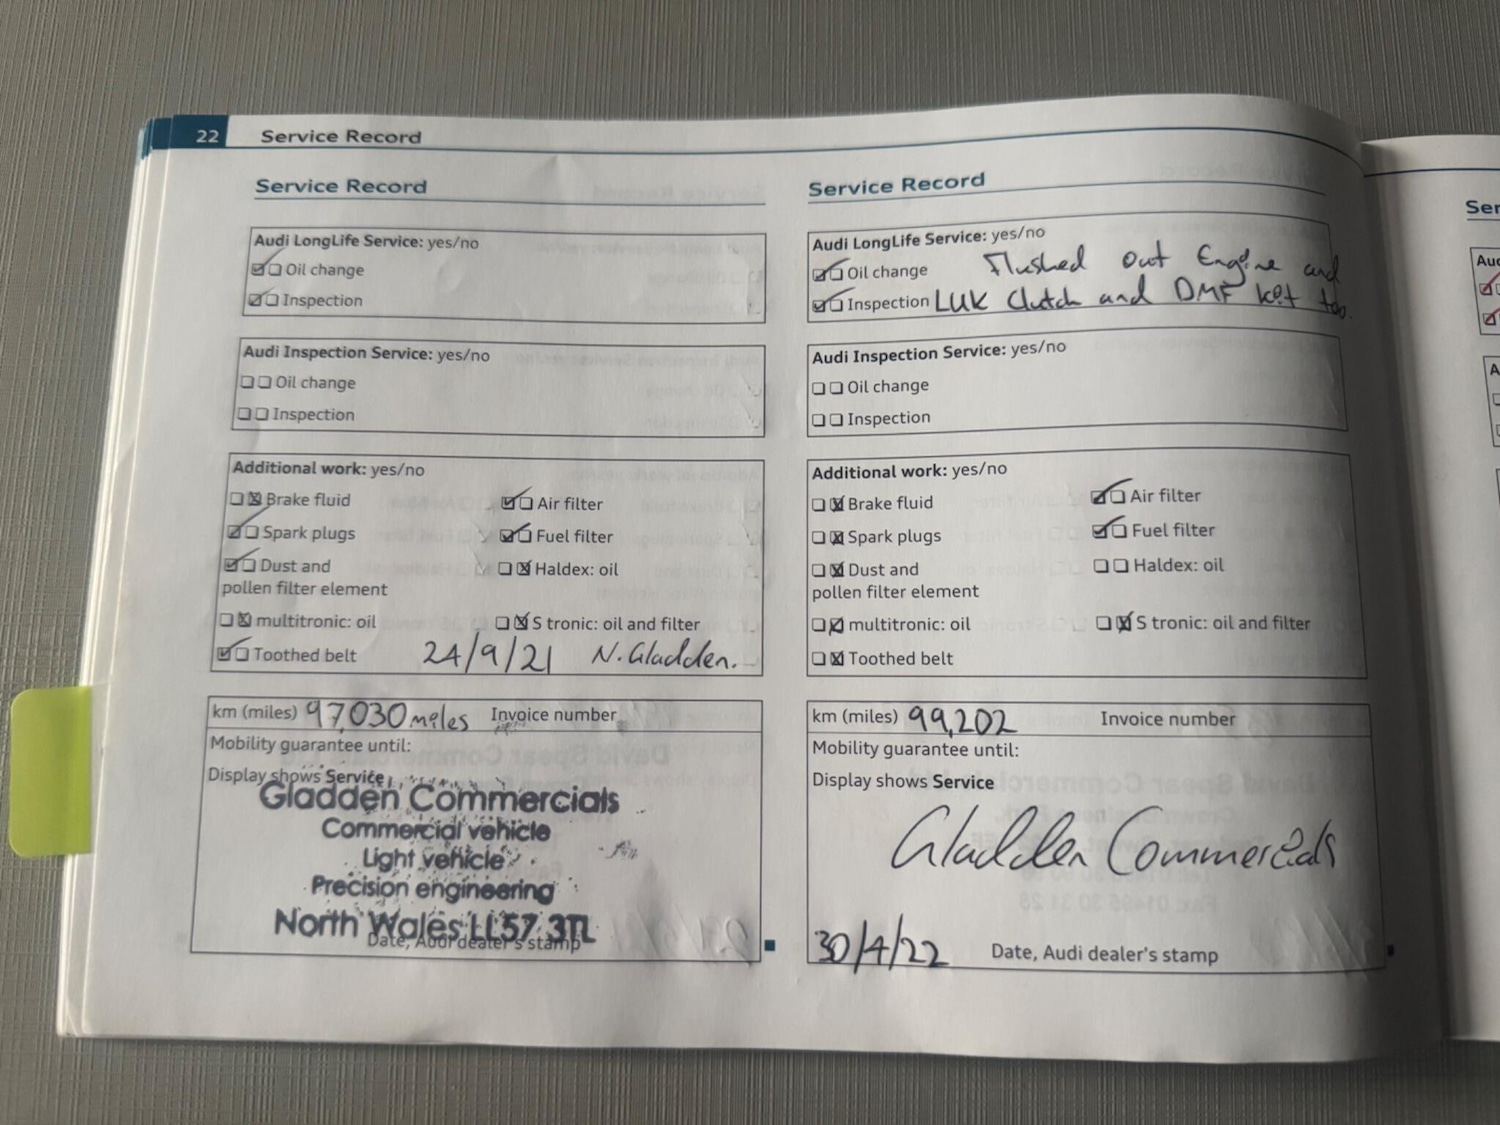 22 Service Record
Service Record
Audi LongLife Service: yes/no
Oil change
Inspection
Audi Inspection Service: yes/no
Oil change
Inspection
Additional work: yes/no
Brake fluid
Air filter
Spark plugs
Fuel filter
Dust and
pollen filter element
Haldex: oil
multitronic: oil
S tronic: oil and filter
Toothed belt
24/9/21 N. Gladden.
km (miles) 97,030 miles Invoice number
Mobility guarantee until:
Display shows Service
Gladden Commercials
Commercial vehicle
Light vehicle
Precision engineering
North Wales LL57 3TL
Date, Audi dealer's stamp
Service Record
Audi LongLife Service: yes/no
Oil change Flushed out Engine and
Inspection LUK Clutch and DMF kit too.
Audi Inspection Service: yes/no
Oil change
Inspection
Additional work: yes/no
Brake fluid
Air filter
Spark plugs
Fuel filter
Dust and
pollen filter element
Haldex: oil
multitronic: oil
S tronic: oil and filter
Toothed belt
km (miles) 99,202 Invoice number
Mobility guarantee until:
Display shows Service
Gladden Commercials
30/4/22 Date, Audi dealer's stamp